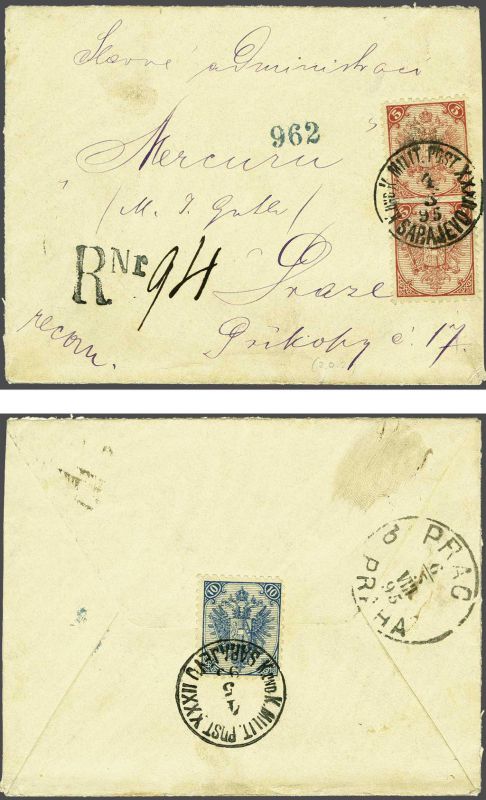 Slavné administraci
962
Mercuru
5
K. UND K. MILIT. POST XXXII
4
3
95
SARAJEVO
5
R Nr 94
Praze
recom.
Příkopy č. 17.
10 10
K. UND K. MILIT. POST. XXXII
4
3
95
SARAJEVO
PRAG
6
95
PRAHA